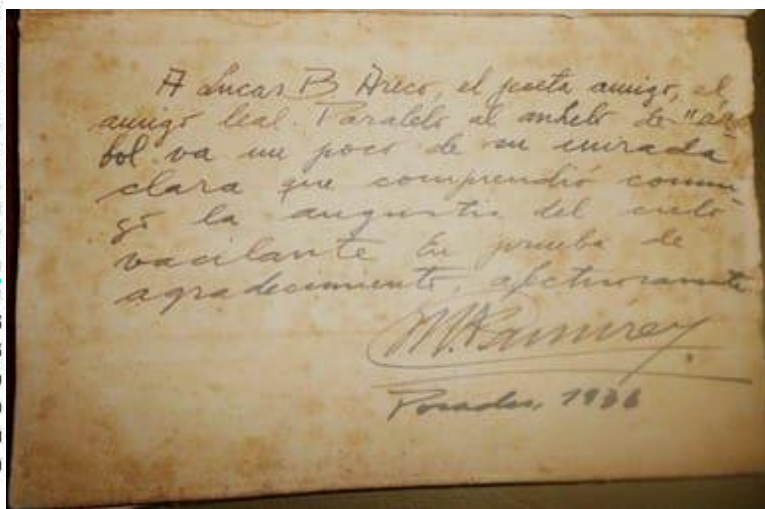 A Lucas B Areco, el poeta amigo, el
amigo leal. Paralelo al anhelo de "ár-
bol va un poco de su mirada
clara que comprendió conmi-
go la angustia del cielo
vacilante En prueba de
agradecimiento, afectuosamente
M. Ramírez
Posadas, 1936